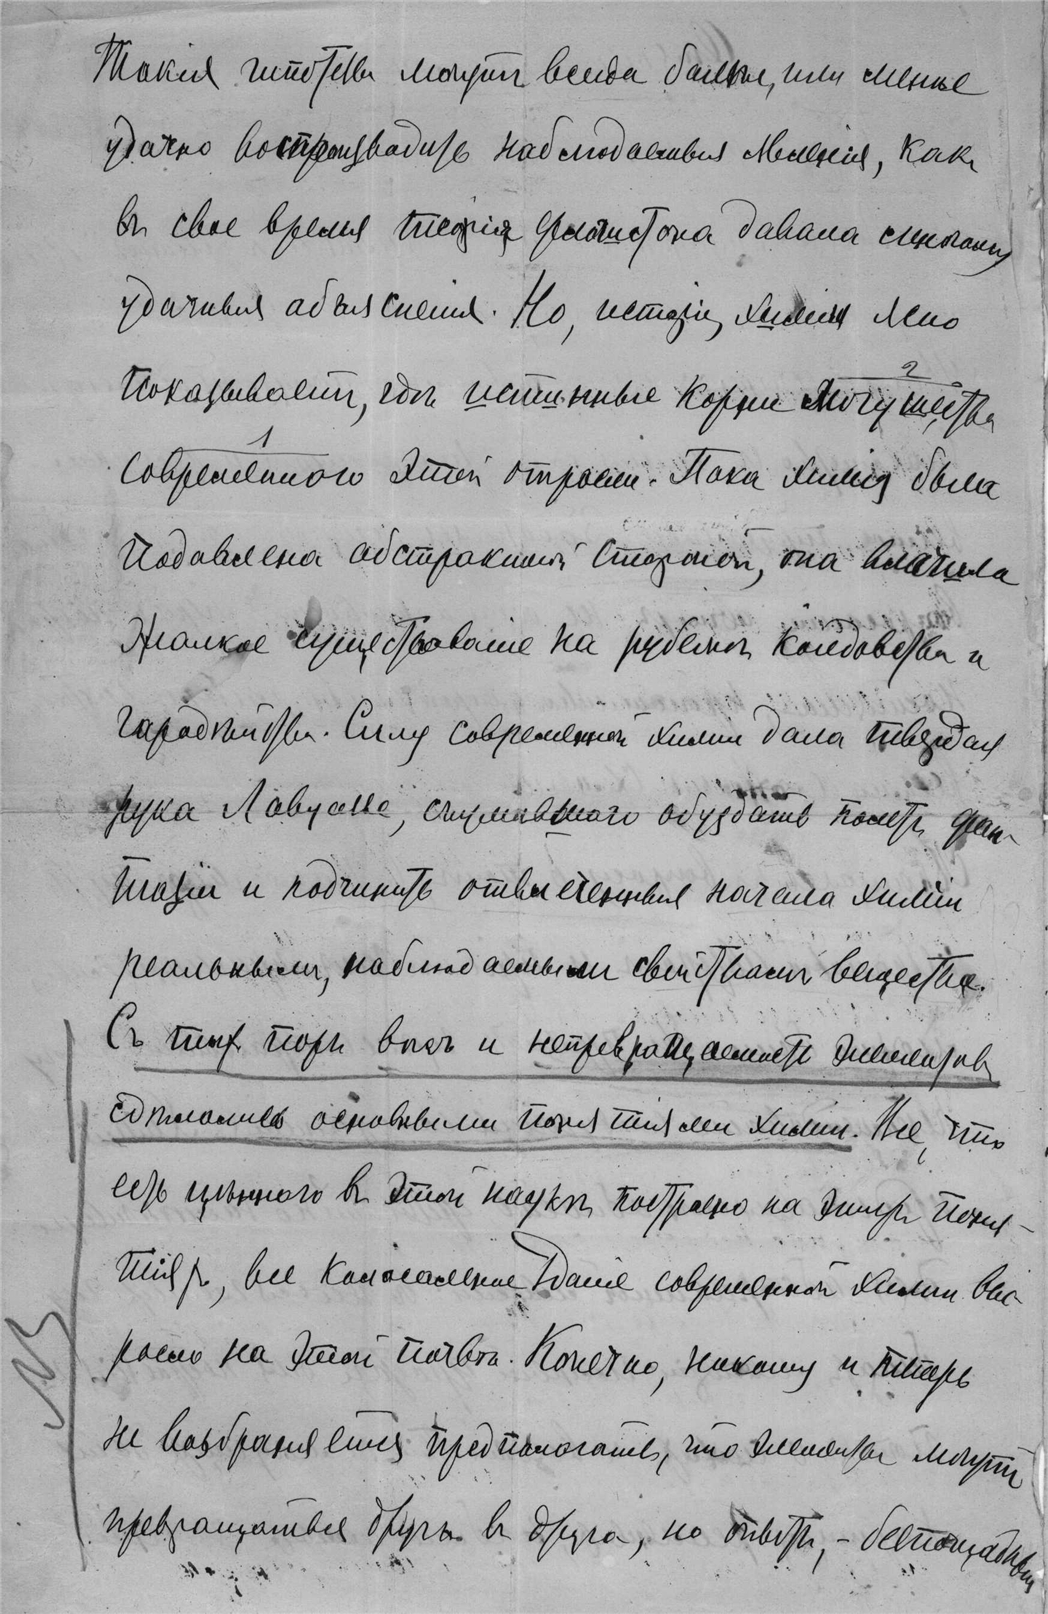 Такія гипотезы могутъ всегда болѣе, или менѣе
удачно воспроизводить наблюдаемыя явленія, какъ
въ свое время теорія флогистона давала синтезу
удачныя объясненія. Но, исторія химіи ясно
показываетъ, гдѣ истинные корни могущества 2
современного 1 этой отрасли. Пока химія была
подавлена абстрактной стороной, она влачила
жалкое существованіе на рубежѣ колдовства и
чародѣйства. Силу современной химіи дала твердая
рука Лавуазье, съумѣвшаго обуздать полетъ фан-
тазіи и подчинить отвлеченныя начала химіи
реальнымъ, наблюдаемымъ свойствамъ вещества.
Съ тѣхъ поръ вѣсъ и непревращаемость элементовъ
сдѣлались основными понятіями химіи. Все, что
есть цѣннаго въ этой наукѣ построено на этихъ поня-
тіяхъ, все колоссальное зданіе современной химіи вы-
росло на этой почвѣ. Конечно, никому и теперь
не возбраняется предполагать, что элементы могутъ
превращаться другъ въ друга, но опытъ, – безпощадный
NB